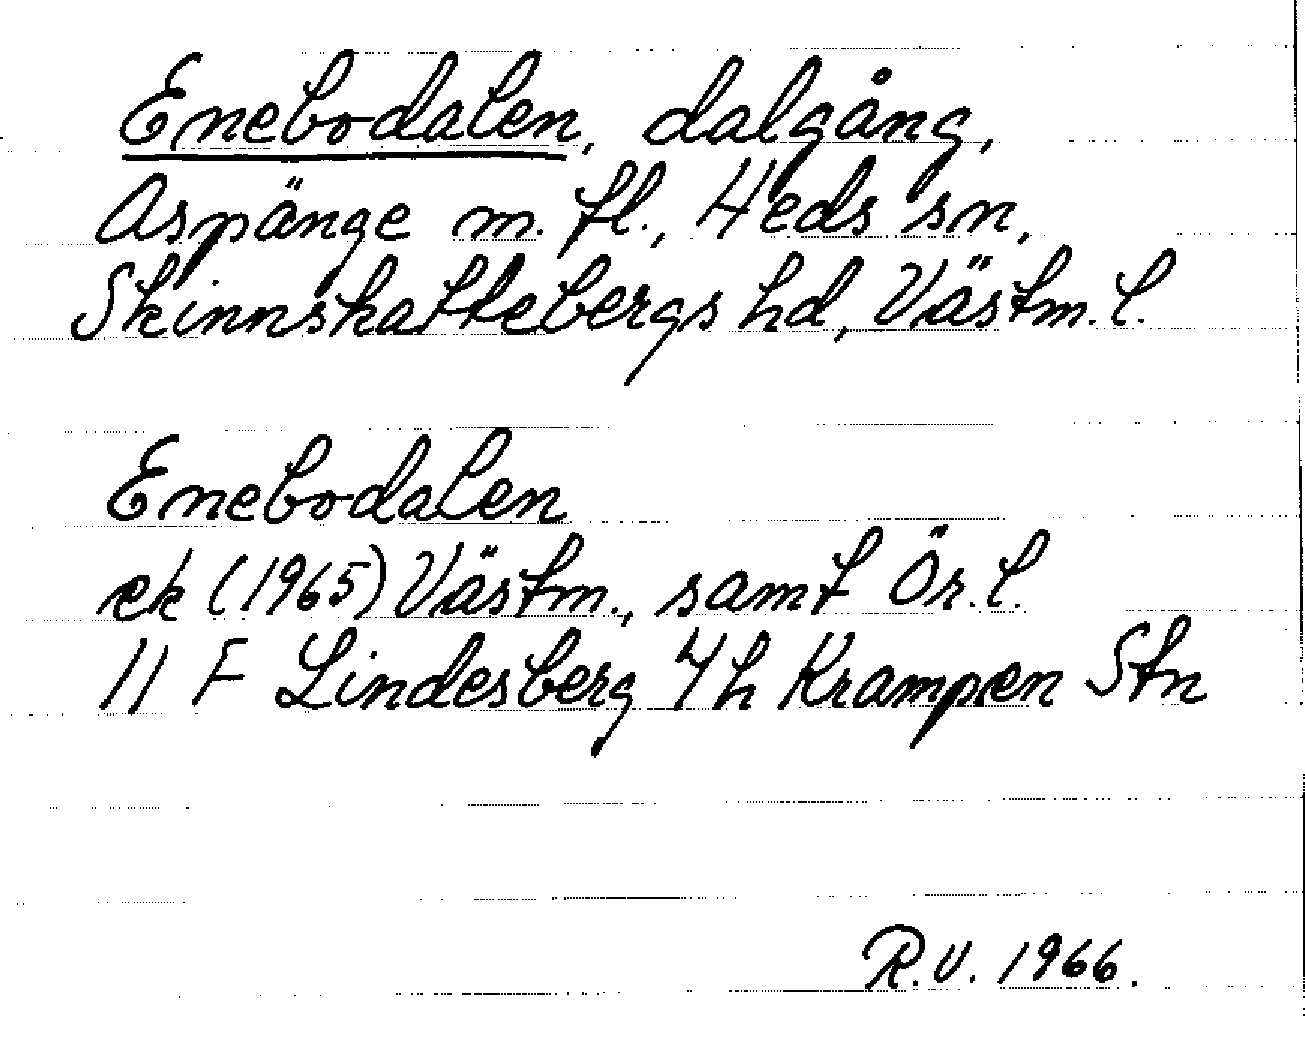 Enebodalen, dalgång,
Aspänge m. fl., Heds sn,
Skinnskattebergs hd, Västm. l.
Enebodalen
ek (1965) Västm., samt Ör. l.
11 F Lindesberg 4h Krampen Stn
R.V. 1966.